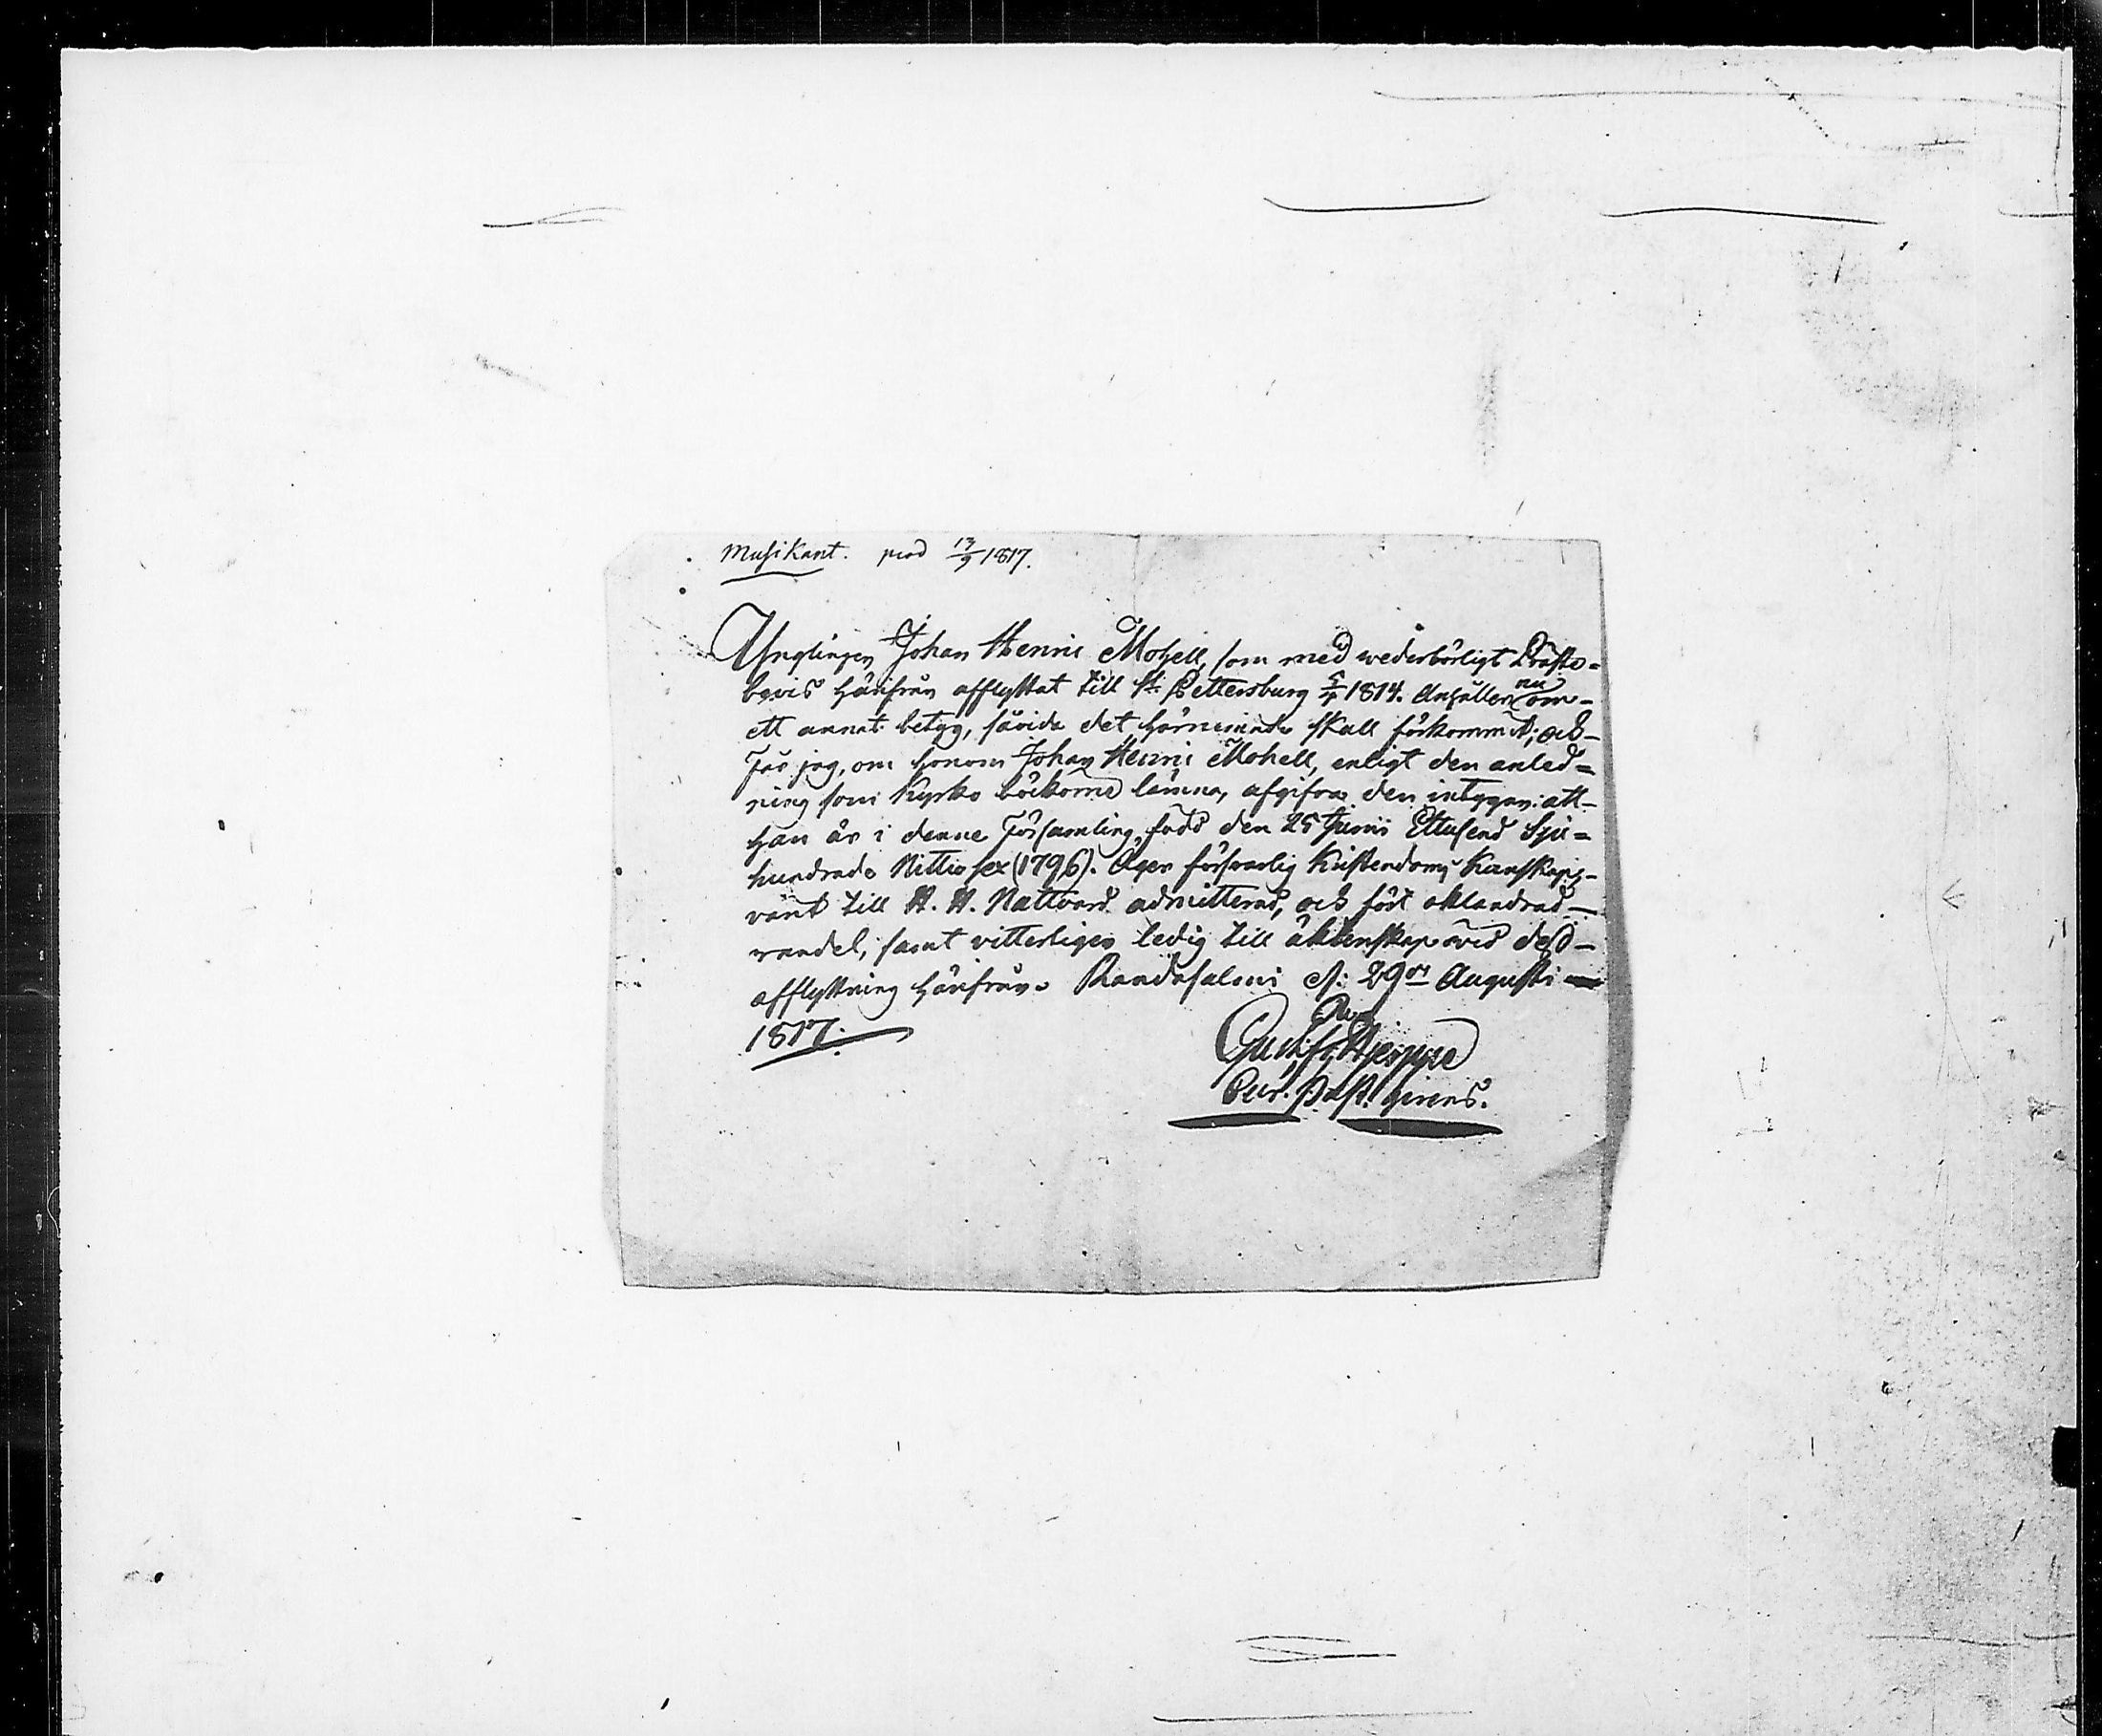 Musikant. prod 13/9 1817.
Ynglingen Johan Henric Mohell, som med wederbörligt Präste-
bevis härifrån afflyttat till St. Pettersburg 5/4 1814. Anhåller nu om-
ett annat betyg, såvida det förnemnda skall förkommit; och-
Får jag, om honom Johan Henric Mohell, enligt den anled-
ning som Kyrko böckerne lämna, afgifva den intygan: att-
han är i denne Församling född den 25 Junii Ettusend Sju-
hundrade Nittio sex (1796). Äger försvarlig Kristendoms Kunskap,-
vant till H. H. Nattvard admitterad, och fört oklandrad-
wandel, samt vitterligen ledig till äktenskap vid dess-
afflyttning härifrån. Randasalmi d: 29de Augusti
1817.
Gustaf Hjeppe
Cur. Past. girens.